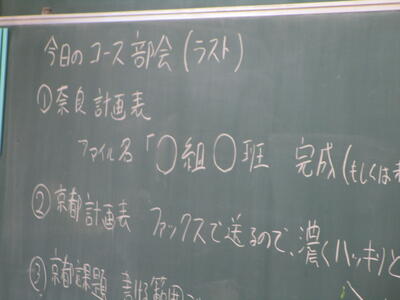 今日のコース部会(ラスト)
①奈良計画表
ファイル名「○組○班 完成(もしくは
②京都計画表 ファックスで送るので、濃く(ハッキリ)と
③京都課題 書ける範囲